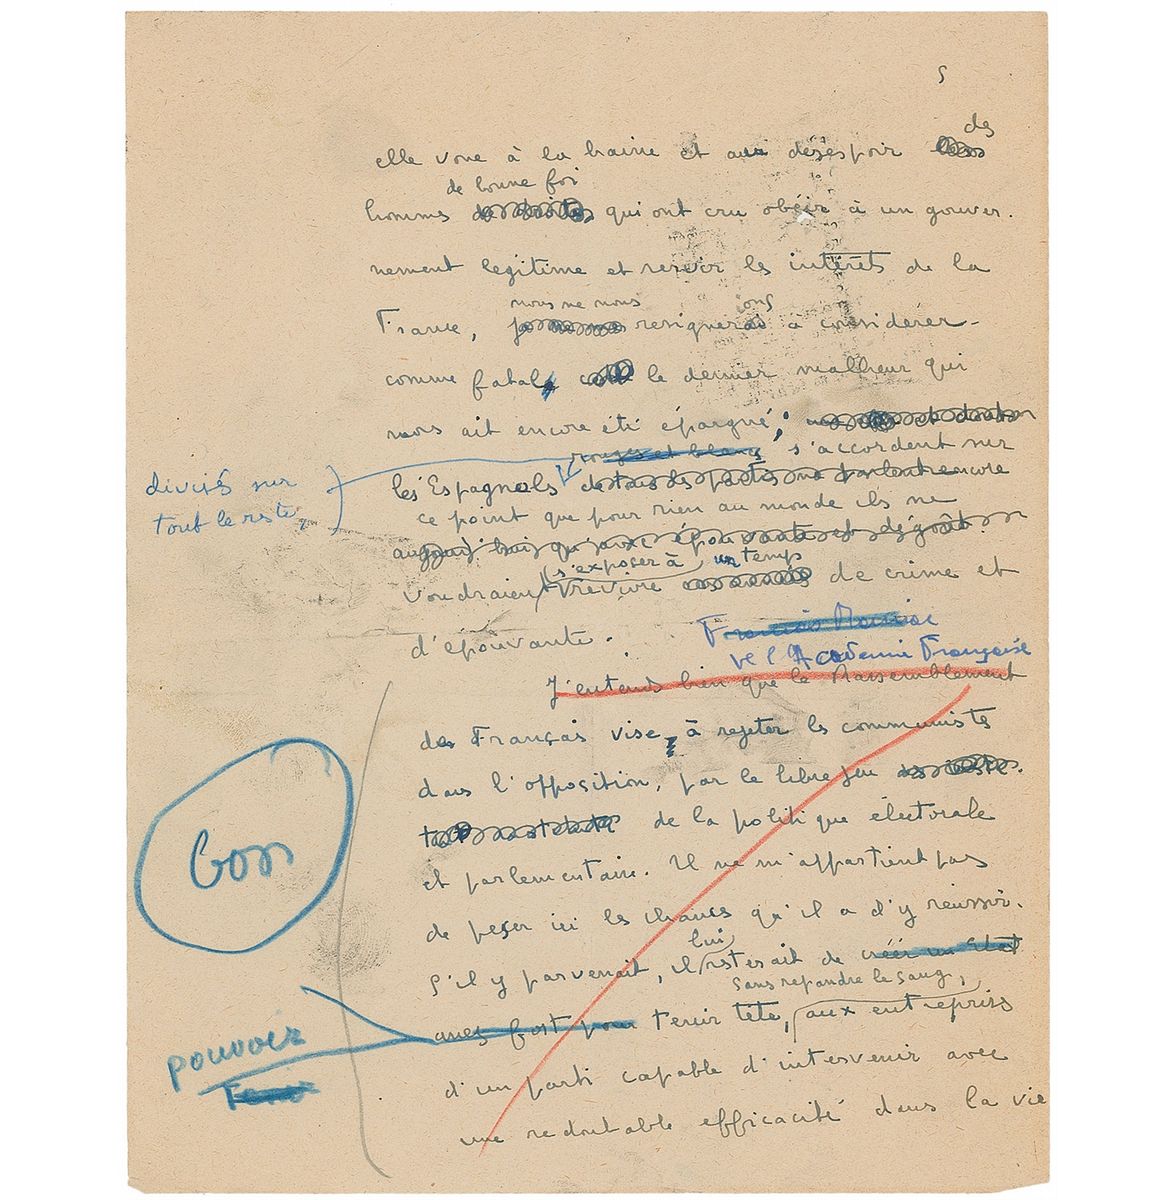 5
des
elle voue à la haine et au désespoir
de bonne foi
hommes qui ont cru obéir à un gouver.
nement legitime et servir les intérêts de la
nous ne nous ons
France, resignerais à considérer
comme fatal le dernier malheur qui
nous ait encore été épargné; et dont
rouges et blancs s'accordent sur
divisés sur
tout le reste,
les Espagnols
ce point que pour rien au monde ils ne
s'exposer à un temps
voudraient revivre de crime et
d'épouvante.
de l'Académie Française
J'entends bien que le Rassemblement
des Français vise à rejeter les communistes
dans l'opposition, par le libre jeu
de la politique électorale
et parlementaire. Il ne m'appartient pas
bon
de peser ici les chances qu'il a d'y réussir.
lui
S'il y parvenait, il resterait de créer un Etat
sans repandre le sang,
assez fort pour tenir tête, aux entreprises
pouvoir
d'un parti capable d'intervenir avec
une redoutable efficacité dans la vie